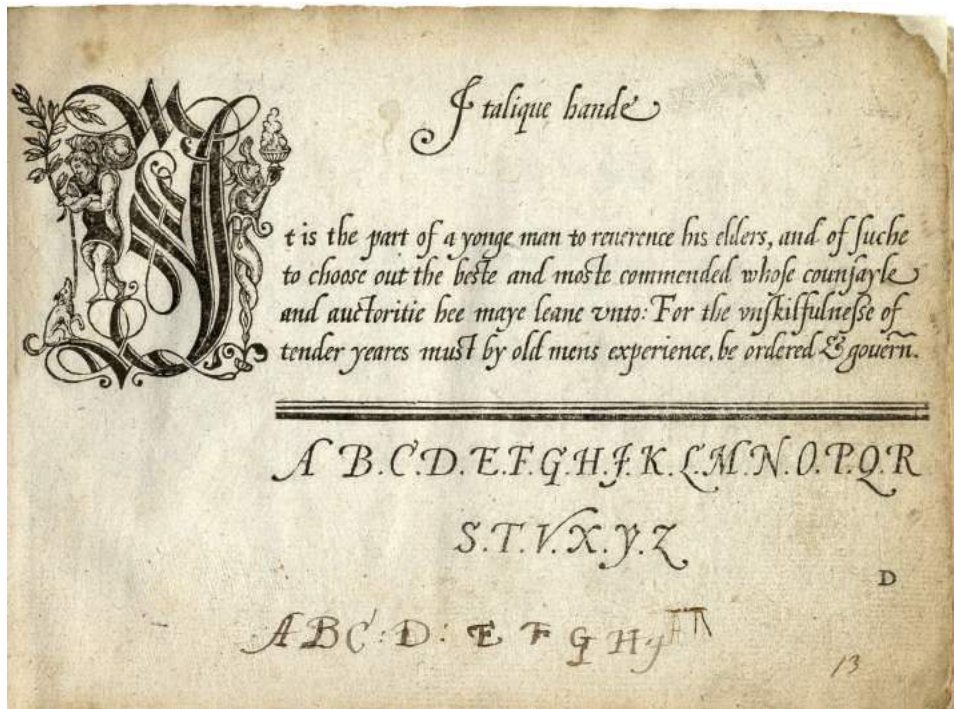 Italique hande
It is the part of a yonge man to reuerence his elders, and of ſuche
to choose out the beſte and moſte commended whoſe counſayle
and auctoritie hee maye leane vnto: For the vnſkilfulneſſe of
tender yeares muſt by old mens experience, be ordered & gouern̄.
A B.C.D.E.F.G.H.J.K.L.M.N.O.P.Q.R
S.T.V.X.y.Z
D
A B C : D : E F G H y
13